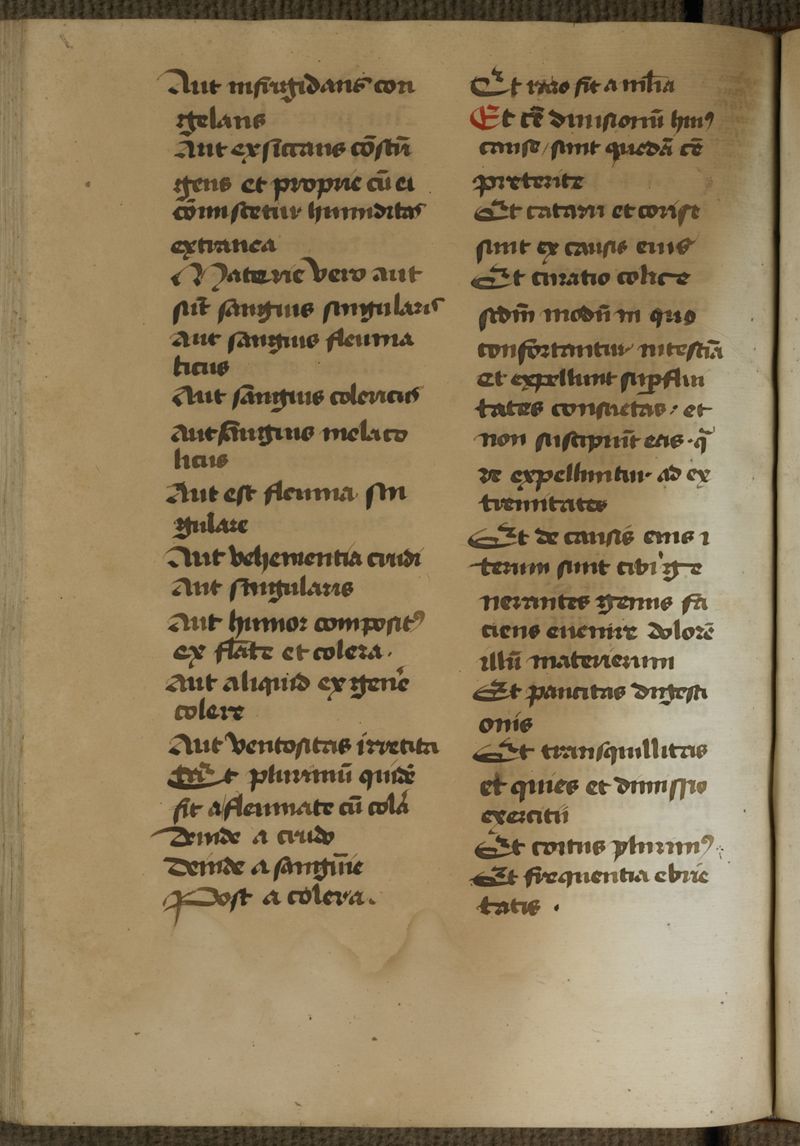 Aut infrigidans con
gelans
Aut exsiccans cōstrī
gens et proprie cū ei
cōmiscetur humiditas
extranea
Materie vero aut
sūt sanguis singularis
Aut sanguis fleuma
ticus
Aut sanguis colericus
Aut sanguis melāco
licus
Aut est fleuma sin
gulare
Aut vehementia crudi
Aut singularis
Aut humor composit⁹
ex flāte et colera .
Aut aliquid ex genē
colere
Aut ventositas irretita
Et plurimū quidē
fit a fleumate cū colā
Deinde a crudo
Deinde a sanguīe
Post a colera .
Et raro fit a mlīa
Et cē divisionū hui⁹
cause / sunt quedā cē
preterite
Et catarri et corise
sunt ex causis eius
Et curatio colice
scdm̄ modū in quo
confortantur intestīa
et expellunt suꝑflui
tates consuetas / et
non suscipiūt eas . q̄
de expelluntur ad ex
tremitates
Et de causis eius i
terum sunt cibi ge
nerantes genus fa
ciens evenire dolorē
illū materierum
Et paucitas digesti
onis
Et transquillitas
et quies et dimissio
exercitii
Et coitus plurim⁹
Et frequentia ebrie
tatis .